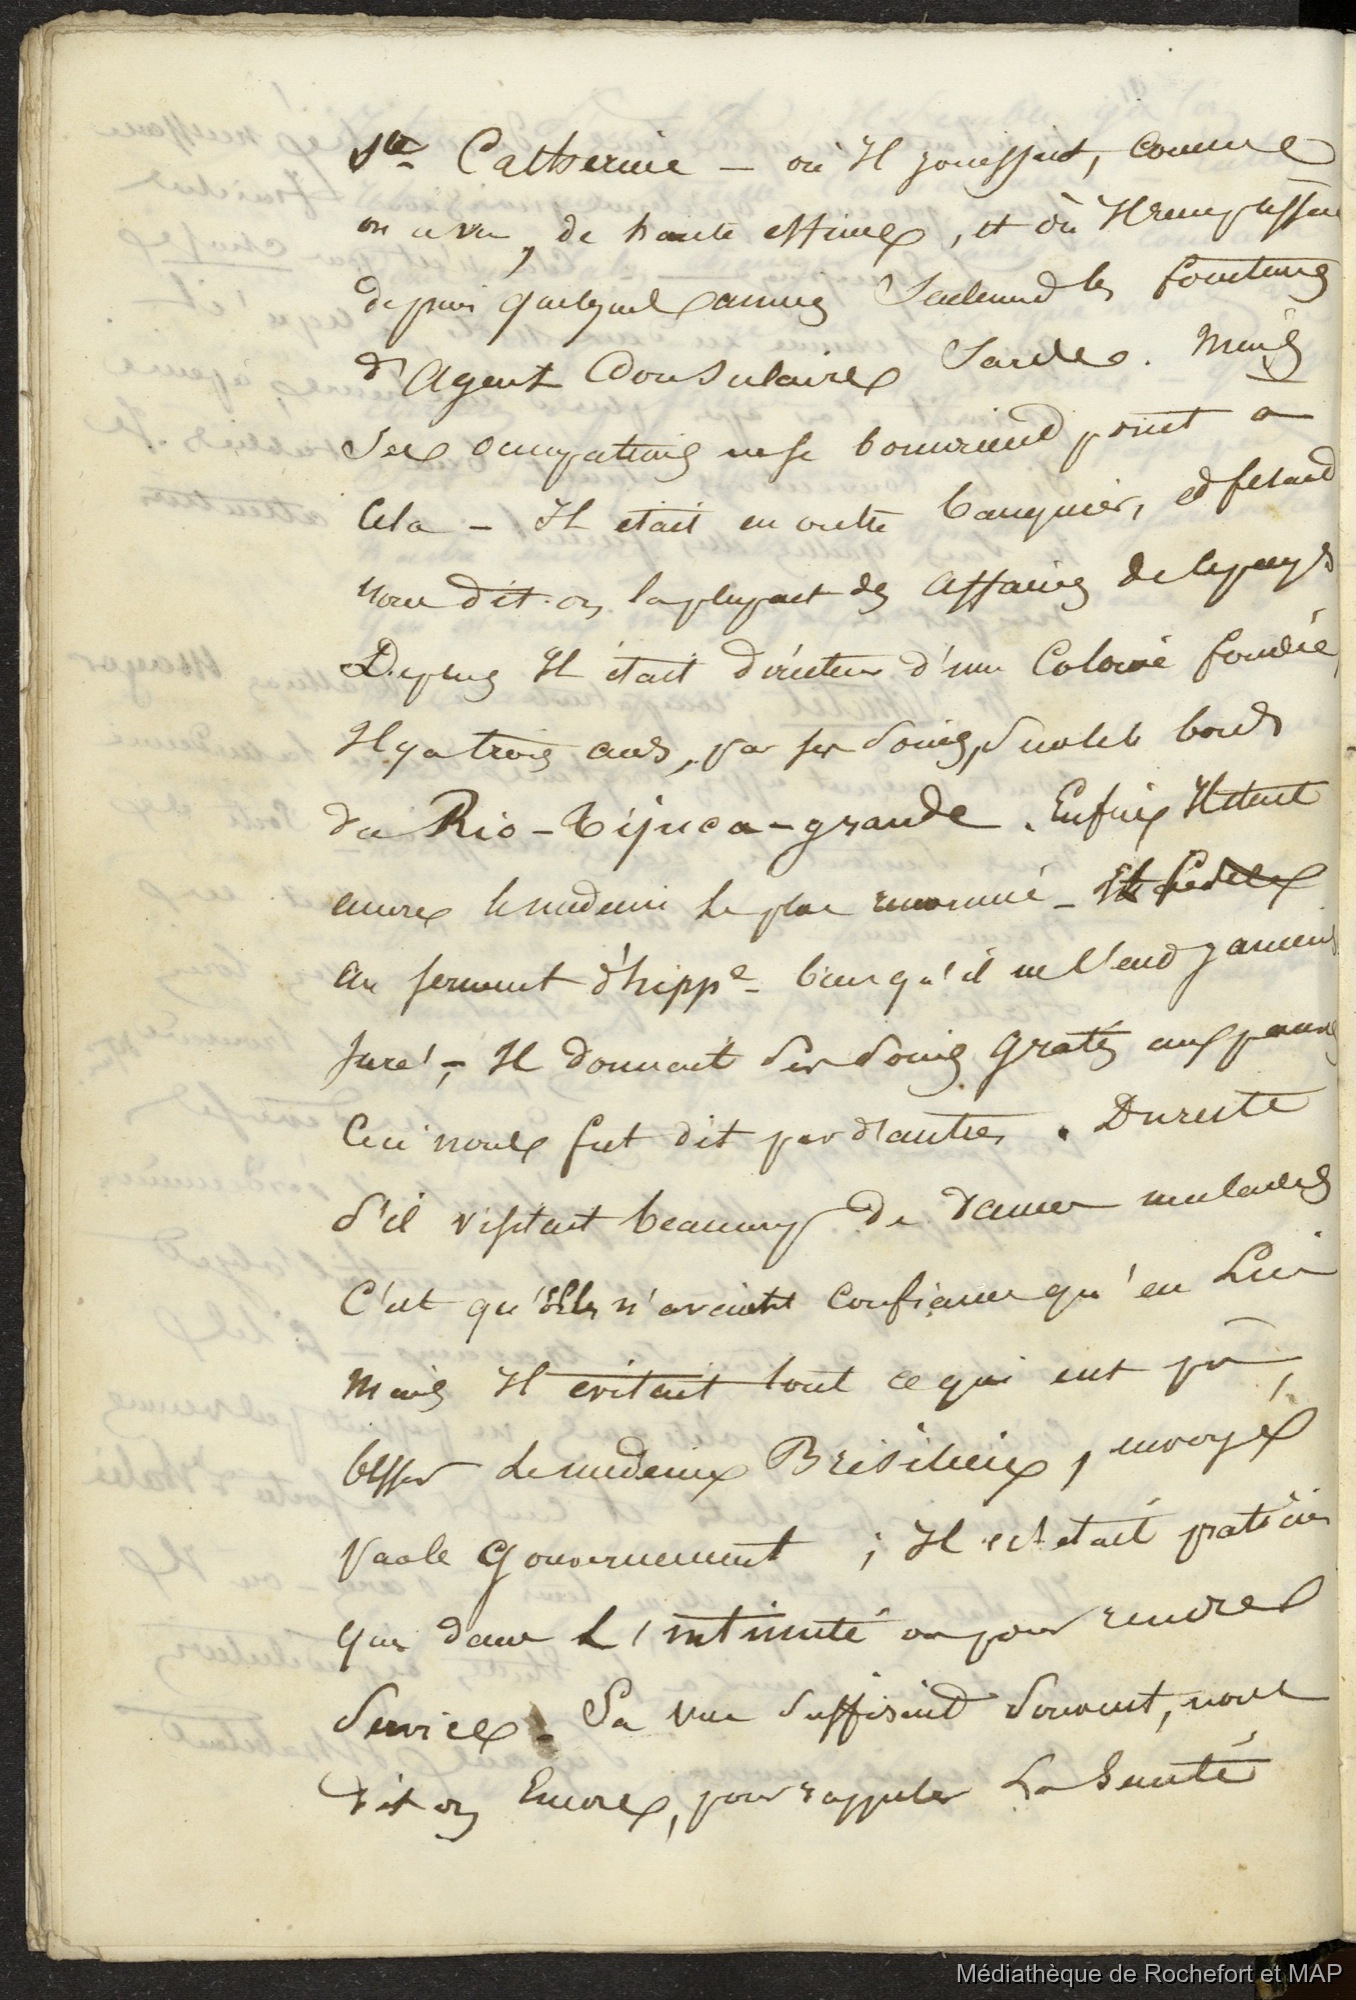 Ste Catherine – où Il jouissait, comme
on a vu, de haute estime, et où Il remplissait
depuis quelques années seulement les fonctions
d'Agent Consulaire Sarde. Mais
Ses occupations ne se bornaient point à
Cela – Il était en outre banquier, et fesait
nous dit-on, la plupart des affaires de le pays
De plus Il était directeur d'une Colonie fondée,
Il y a trois ans, par ses soins, sur les bords
du Rio-Tijuca-grande. Enfin Il était
encore le médecin le plus renommé – fidèle
au serment d'hippe – bien qu'il ne l'eut jamais
juré, – Il donnait ses soins gratis aux pauvres
Ceci nous fut dit par d'autres. Du reste
s'il visitait beaucoup de dames malades
C'est qu'Elles n'avaient confiance qu'en Lui
Mais Il évitait tout ce qui eut pû,
blesser le médecin Brésilien, envoyé
par le Gouvernement ; Il était praticien
que dans L'intimité ou pour rendre
Service. Sa vue suffisait souvent, nous
dit on Encore, pour rappeler La Santé
Médiathèque de Rochefort et MAP